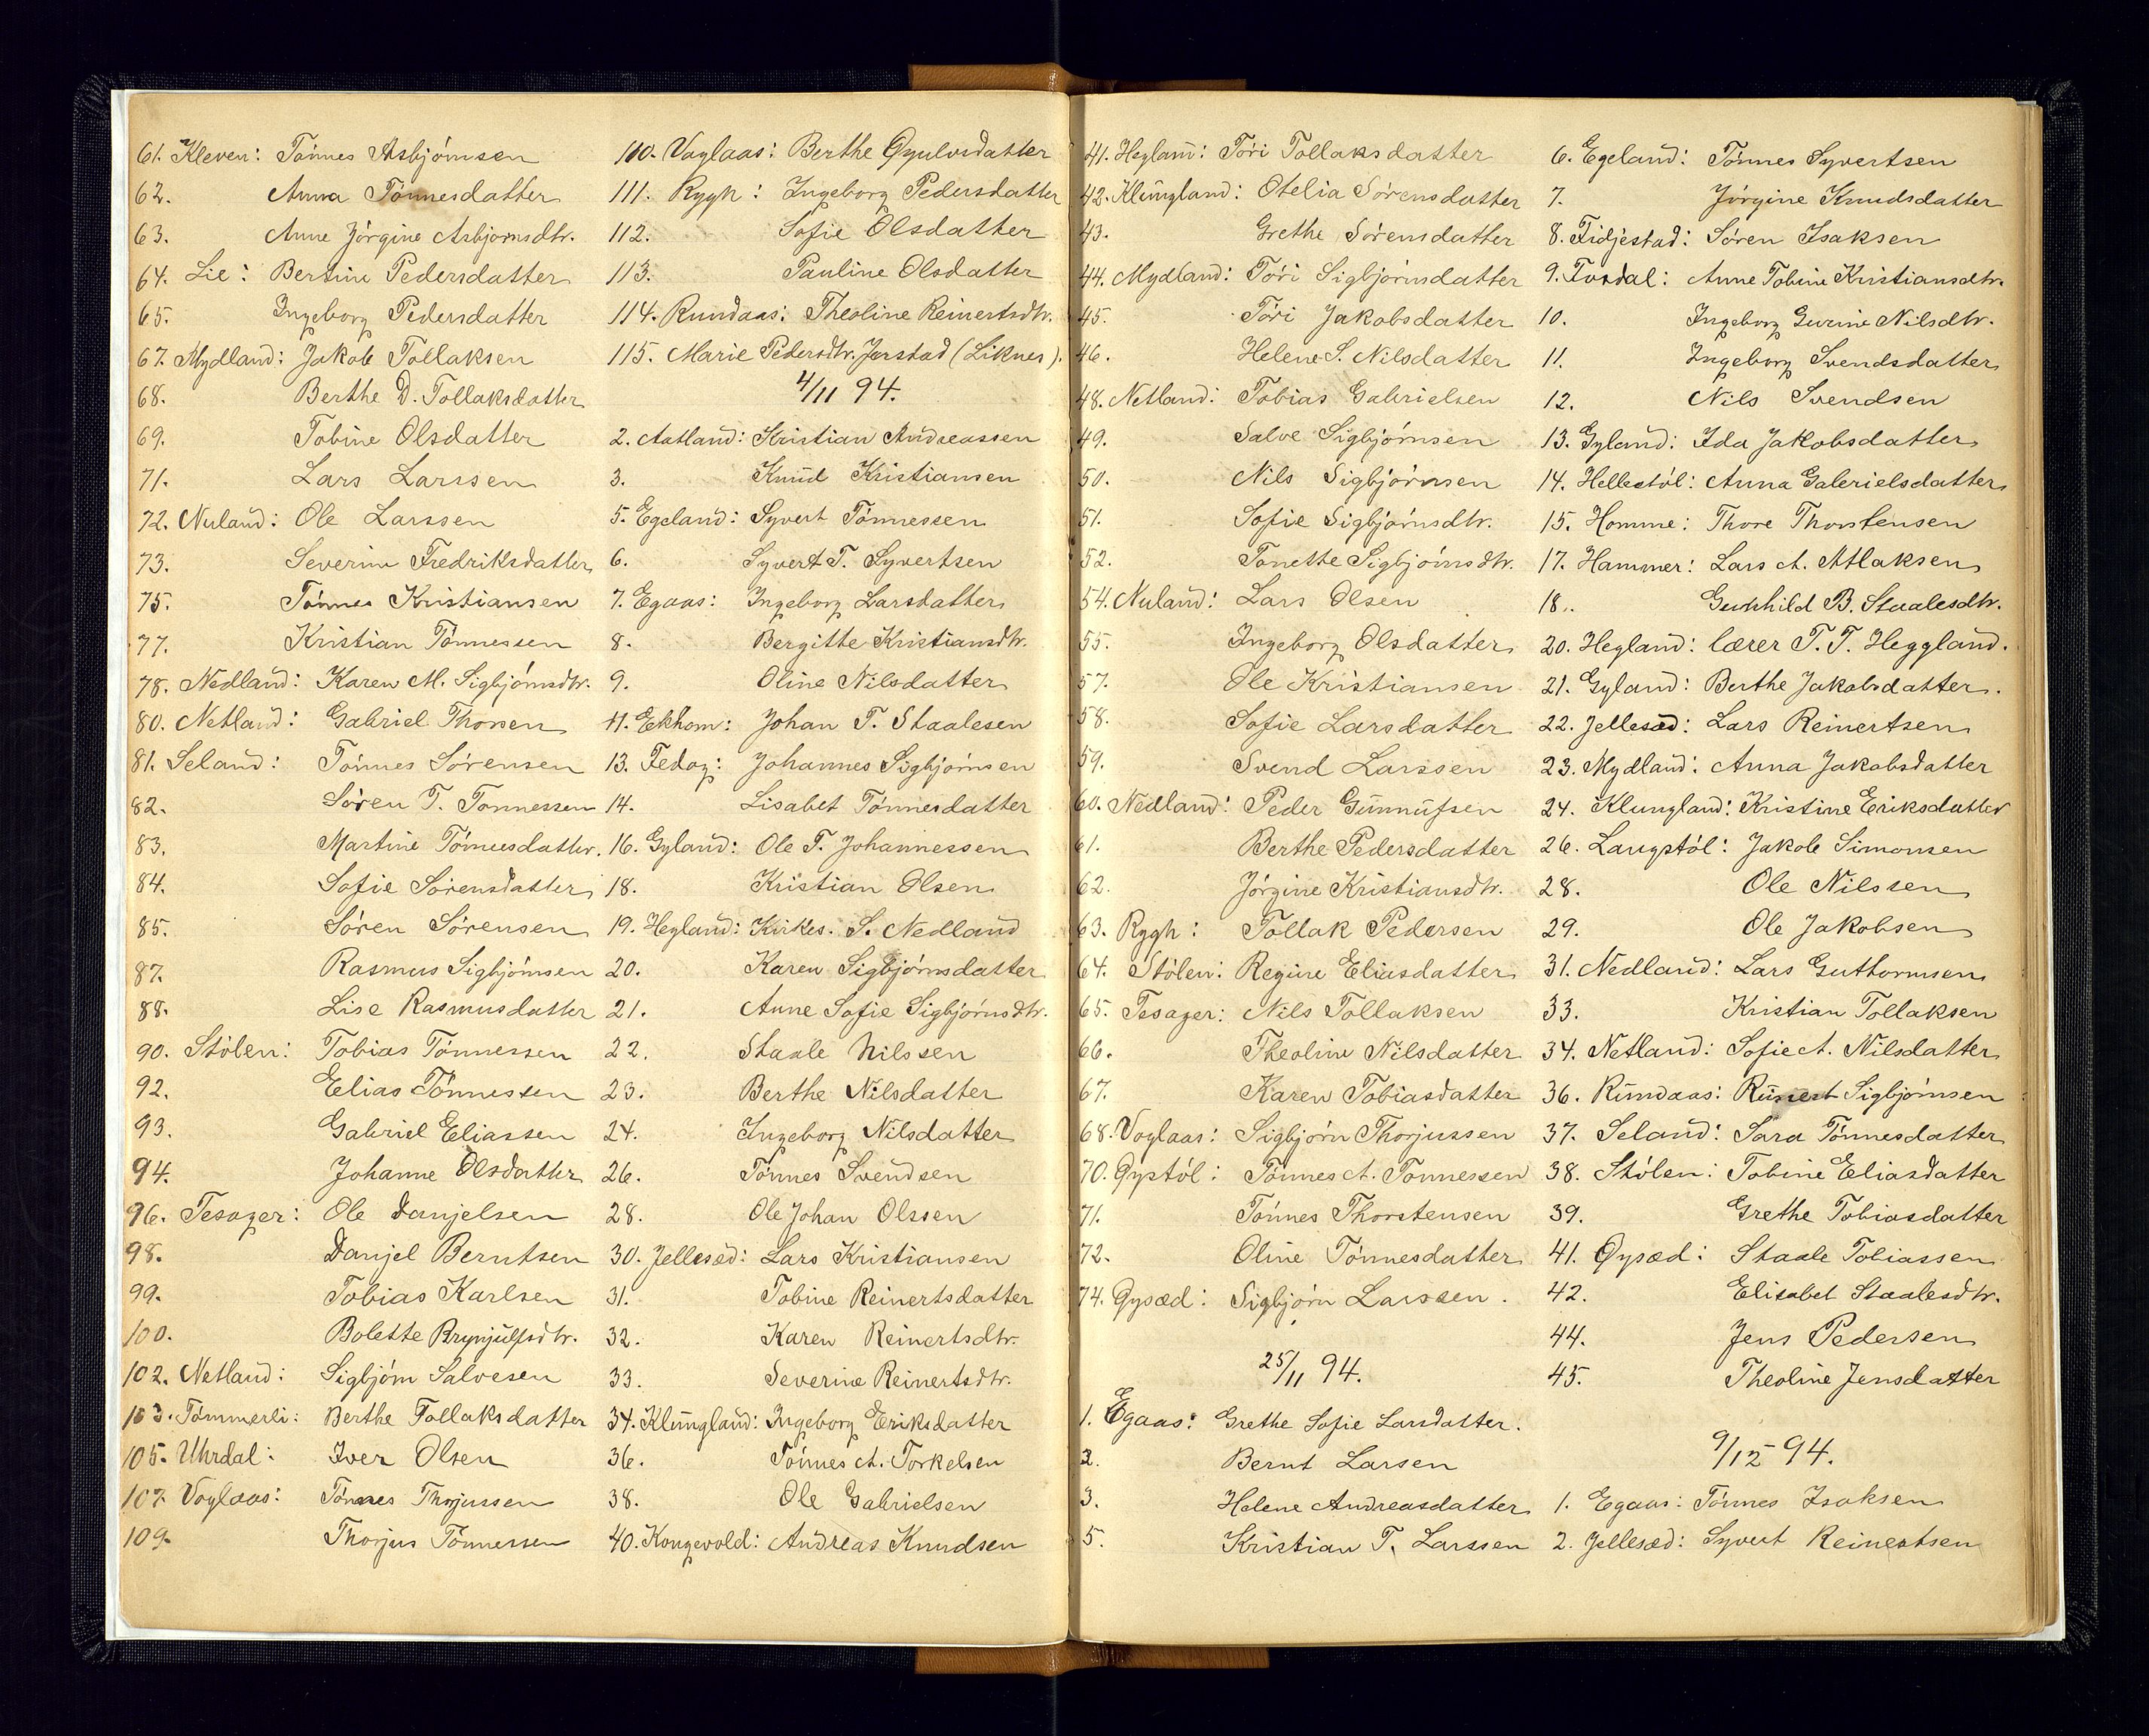 61. Kleven: Tónnes Asbjórnsen
62. Anna Tónnesdatter
63. Anne Jórgine Asbjornsdtr.
64. Lie: Bertine Pedersdatter
65. Ingeborg Pedersdatter
67. Mydland: Jakob Tollaksen
68. Berthe D. Tollaksdatter
69. Tobine Olsdatter
71. Lars Larssen
72. Nuland: Ole Larssen
73. Severine Fredriksdatter
75. Tónnes Kristiansen
77. Kristian Tónnessen
78. Nedland: Karen M. Sigbjórnsdtr.
80. Netland: Gabriel Thorsen
81. Seland: Tónnes Sórensen
82. Sóren T. Tonnessen
83. Martine Tónnesdatter.
84. Sofie Sórensdatter
85. Sóren Sórensen
87. Rasmus Sigbjórnsen
88. Lise Rasmusdatter
90. Stólen: Tobias Tónnessen
92. Elias Tónnessen
93. Gabriel Eliassen
94. Johanne Olsdatter
96. Tesager: Ole Danjelsen
98. Danjel Berntsen
99. Tobias Karlsen
100. Bolette Brynjulfsdtr.
102. Netland: Sigbjórn Salvesen
103. Tómmerli: Berthe Tollaksdatter
105. Uhrdal: Iver Olsen
107. Voglaas: Tónnes Thorjussen
109. Thorjus Tónnessen
110. Voglaas: Berthe Gyulvsdatter
111. Rygh: Ingeborg Pedersdatter
112. Sofie Olsdatter
113. Pauline Olsdatter
114. Rundaas: Theoline Reinertsdtr.
115. Marie Pedersdtr. Jerstad (Liknes).
4/11 94.
2. Aatland: Kristian Andreassen
3. Knud Kristiansen
5. Egeland: Syvert Tónnessen
6. Syvert T. Syvertsen
7. Egaas: Ingeborg Larsdatter
8. Bergitte Kristiansdtr.
9. Oline Nilsdatter
11. Ekhom: Johan T. Staalesen
13. Fedog: Johannes Sigbjórnsen
14. Lisabet Tónnesdatter
16. Gyland: Ole T. Johannessen
18. Kristian Olsen
19. Hegland: Kirkes. S. Nedland
20. Karen Sigbjórnsdatter
21. Anne Sofie Sigbjórnsdtr.
22. Staale Nilssen
23. Berthe Nilsdatter
24. Ingeborg Nilsdatter
26. Tónnes Svendsen
28. Ole Johan Olssen
30. Jellesæd: Lars Kristiansen
31. Tobine Reinertsdatter
32. Karen Reinertsdtr.
33. Severine Reinertsdtr.
34. Klungland: Ingeborg Eriksdatter
36. Tónnes A. Torkelsen
38. Ole Gabrielsen
40. Kongevold: Andreas Knudsen
41. Hegland: Tóri Tollaksdatter
42. Klungland: Otelia Sórensdatter
43. Grethe Sórensdatter
44. Mydland: Tóri Sigbjórnsdatter
45. Tóri Jakobsdatter
46. Helene S. Nilsdatter
48. Netland: Tobias Gabrielsen
49. Salve Sigbjórnsen
50. Nils Sigbjórnsen
51. Sofie Sigbjórnsdtr.
52. Tonette Sigbjórnsdtr.
54. Nuland: Lars Olsen
55. Ingeborg Olsdatter
57. Ole Kristiansen
58. Sofie Larsdatter
59. Svend Larssen
60. Nedland: Peder Gunnufsen
61. Berthe Pedersdatter
62. Jórgine Kristiansdtr.
63. Rygh: Tollak Pedersen
64. Stólen: Regine Eliasdatter
65. Tesager: Nils Tollaksen
66. Theoline Nilsdatter
67. Karen Tobiasdatter
68. Voglaas: Sigbjórn Thorjussen
70. Gystól: Tónnes A. Tonnessen
71. Tónnes Thorstensen
72. Oline Tónnesdatter
74. Gysæd: Sigbjórn Larssen.
25/11 94.
1. Egaas: Grethe Sofie Larsdatter.
2. Bernt Larsen
3. Helene Andreasdatter
5. Kristian T. Larssen
6. Egeland: Tónnes Syvertsen
7. Jórgine Knudsdatter
8. Fidjestad: Sóren Isaksen
9. Fosdal: Anne Tobine Kristiansdtr.
10. Ingeborg Gurine Nilsdtr.
11. Ingeborg Svendsdatter
12. Nils Svendsen
13. Gyland: Ida Jakobsdatter
14. Hellestól: Anna Gabrielsdatter
15. Homme: Thore Thorstensen
17. Hammer: Lars A. Atlaksen
18. Gunhild B. Staalesdtr.
20. Hegland: lærer T. T. Heggland.
21. Gyland: Berthe Jakobsdatter.
22. Jellesæd: Lars Reinertsen
23. Mydland: Anna Jakobsdatter
24. Klungland: Kristine Eriksdatter
26. Laugstól: Jakob Simonsen
28. Ole Nilssen
29. Ole Jakobsen
31. Nedland: Lars Guttormsen
33. Kristian Tollaksen
34. Netland: Sofie A. Nilsdatter
36. Rundaas: Reinert Sigbjórnsen
37. Seland: Sara Tónnesdatter
38. Stólen: Tobine Eliasdatter
39. Grethe Tobiasdatter
41. Gysæd: Staale Tobiassen
42. Elisabet Staalesdtr.
44. Jens Pedersen
45. Theoline Jensdatter
9/12 94.
1. Egaas: Tónnes Isaksen
2. Jellesæd: Syvert Reinertsen